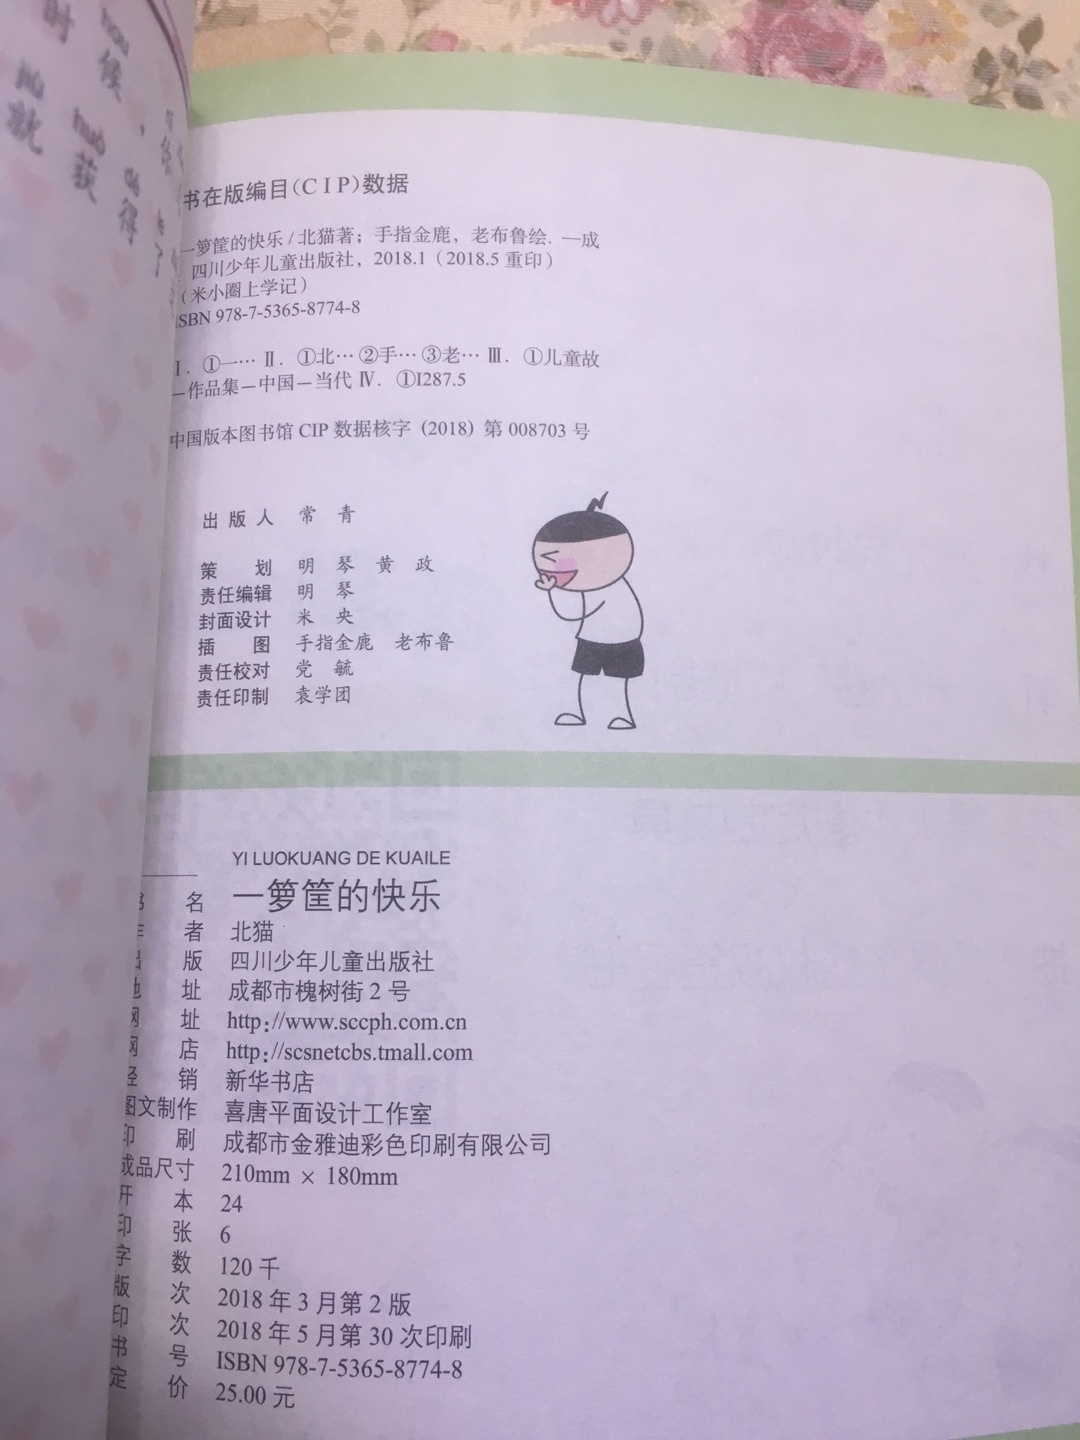 时 候 ，
hou
就 获 得 了
jiu huo de le
书在版编目(CIP)数据
一箩筐的快乐/北猫著；手指金鹿，老布鲁绘. —成
四川少年儿童出版社，2018.1（2018.5 重印）
（米小圈上学记）
ISBN 978-7-5365-8774-8
Ⅰ. ①一… Ⅱ. ①北… ②手… ③老… Ⅲ. ①儿童故
—作品集—中国—当代 Ⅳ. ①I287.5
中国版本图书馆 CIP 数据核字 (2018) 第 008703 号
出版人 常 青
策 划 明 琴 黄 政
责任编辑 明 琴
封面设计 米 央
插 图 手指金鹿 老布鲁
责任校对 党 毓
责任印制 袁学团
YI LUOKUANG DE KUAILE
书 名 一箩筐的快乐
作 者 北猫
出 版 四川少年儿童出版社
地 址 成都市槐树街 2 号
网 址 http://www.sccph.com.cn
网 店 http://scsnetcbs.tmall.com
经 销 新华书店
图文制作 喜唐平面设计工作室
印 刷 成都市金雅迪彩色印刷有限公司
成品尺寸 210mm × 180mm
开 本 24
印 张 6
字 数 120 千
版 次 2018 年 3 月第 2 版
印 次 2018 年 5 月第 30 次印刷
书 号 ISBN 978-7-5365-8774-8
定 价 25.00 元